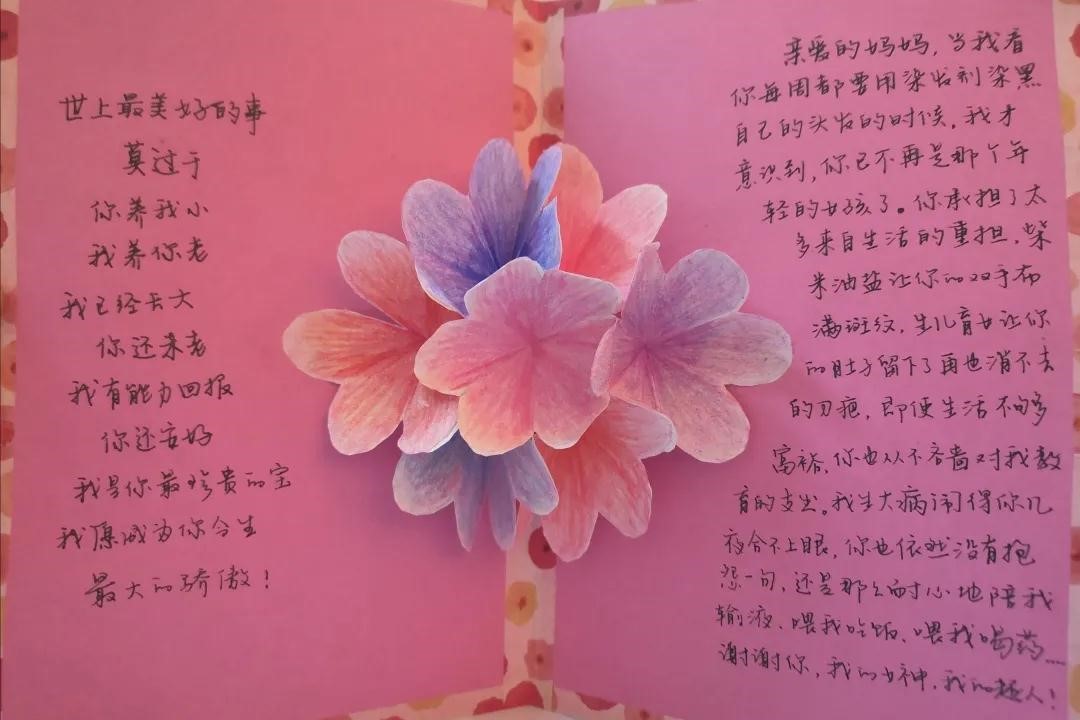 世上最美好的事
莫过于
你养我小
我养你老
我已经长大
你还未老
我有能力回报
你还安好
我是你最珍贵的宝
我愿成为你今生
最大的骄傲！
亲爱的妈妈，当我看
你每周都要用染发剂染黑
自己的头发的时候，我才
意识到，你已不再是那个年
轻的女孩了。你承担了太
多来自生活的重担，柴
米油盐让你的双手布
满斑纹，生儿育女让你
的肚子留下了再也消不去
的刀疤，即使生活不够多
富裕，你也从不吝啬对我教
育的支出。我生大病闹得你几
夜合不上眼，你也依然没有抱
怨一句，还是那么耐心地陪我
输液、喂我吃饭、喂我喝药……
谢谢你，我的女神，我的超人！